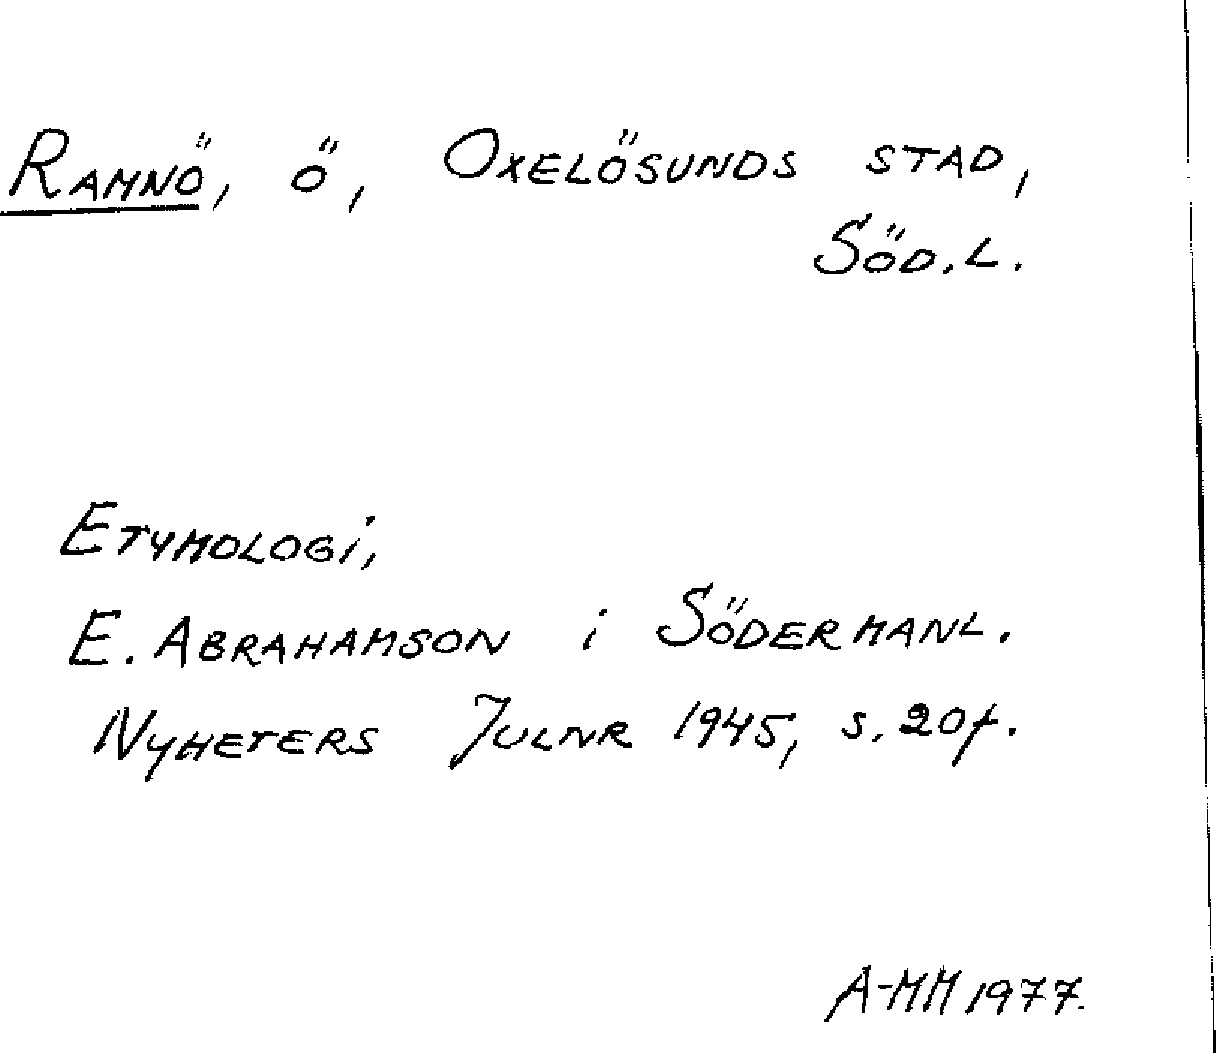 RAMNÖ, Ö, OXELÖSUNDS STAD,
SÖD.L.
ETYMOLOGi,
E. ABRAHAMSON i SÖDERMANL.
NYHETERS JULNR 1945, S. 20f.
A-MM 1977.